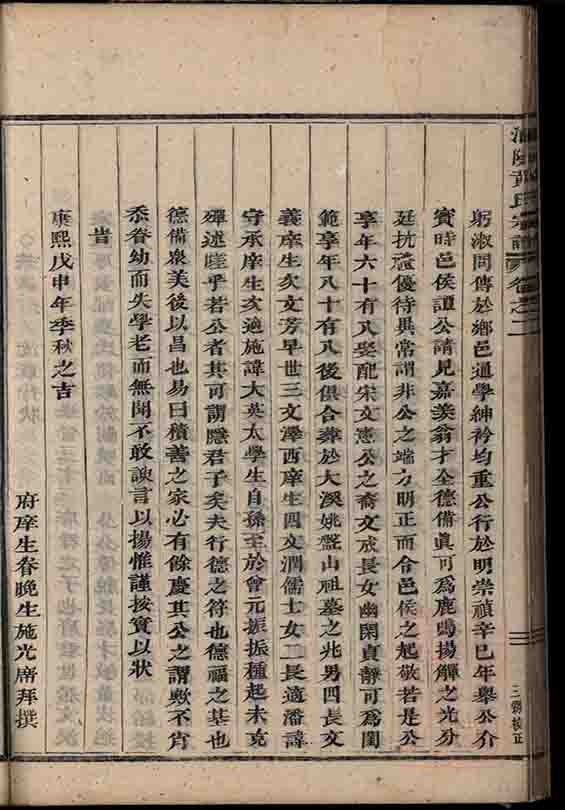 躬淑問傳於鄉邑通學紳衿均重公行於明崇禎辛巳年舉公介
賓時邑侯譚公請見嘉羨翁才全德備眞可爲鹿鳴揚觶之光分
廷抗禮優待異常謂非公之端方明正而令邑侯之起敬若是公
享年六十有八娶配宋文憲公之裔文戒長女幽閑貞靜可爲閨
範享年八十有八後俱合葬於大溪姚盤山祖墓之兆男四長文
義庠生次文芳早世三文澤西庠生四文潤儒士女二長適潘諱
守承庠生次適施諱大英太學生自孫至於曾元振振種起未克
殫述嗟乎若公者其可謂隱君子矣夫行德之符也德福之基也
德備衆美後以昌也易曰積善之家必有餘慶其公之謂歟不肖
忝眷幼而失學老而無聞不敢諛言以揚惟謹按實以狀
旹
康熙戊申年季秋之吉
府庠生眷晚生施光席拜撰
黃氏宗譜 卷之二